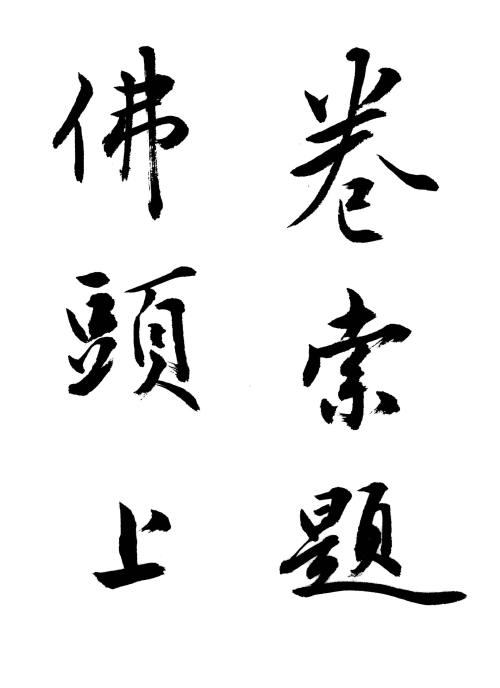 卷索題
佛頭上